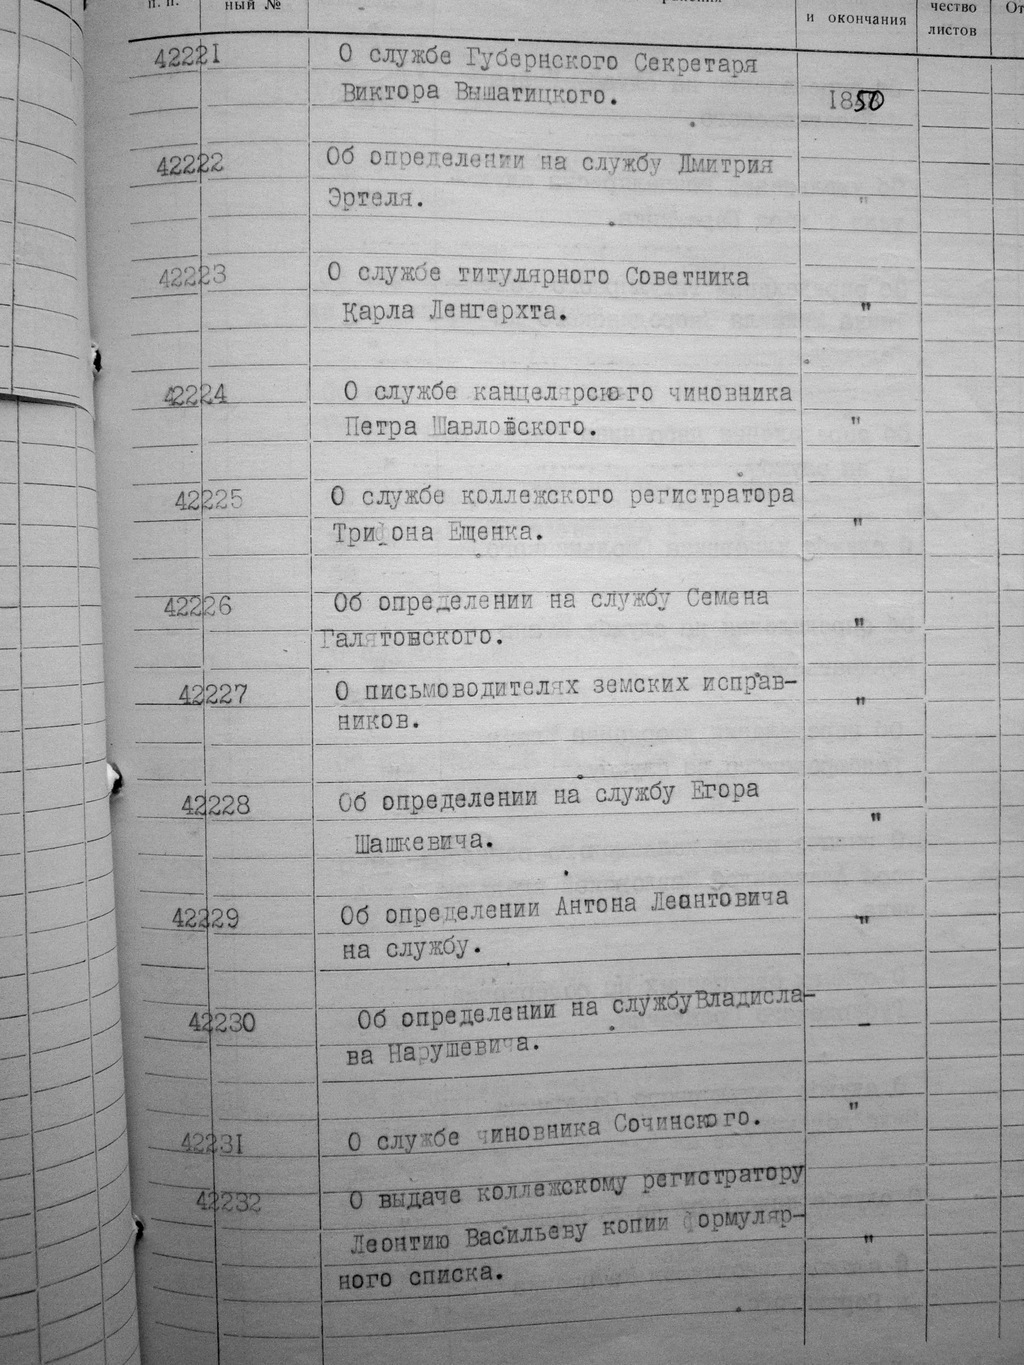 п. п.
ный №
и окончания
чество
листов
От
42221 О службе Губернского Секретаря
Виктора Вышатицкого. 1850
42222 Об определении на службу Дмитрия
Эртеля. "
42223 О службе титулярного Советника
Карла Ленгерхта. "
42224 О службе канцелярского чиновника
Петра Шавловского. "
42225 О службе коллежского регистратора
Трифона Ещенка. "
42226 Об определении на службу Семена
Галятовского. "
42227 О письмоводителях земских исправ-
ников. "
42228 Об определении на службу Егора
Шашкевича. "
42229 Об определении Антона Леонтовича
на службу. "
42230 Об определении на службуВладисла-
ва Нарушевича. -
42231 О службе чиновника Сочинского. "
42232 О выдаче коллежскому регистратору
Леонтию Васильеву копии формуляр-
ного списка. "